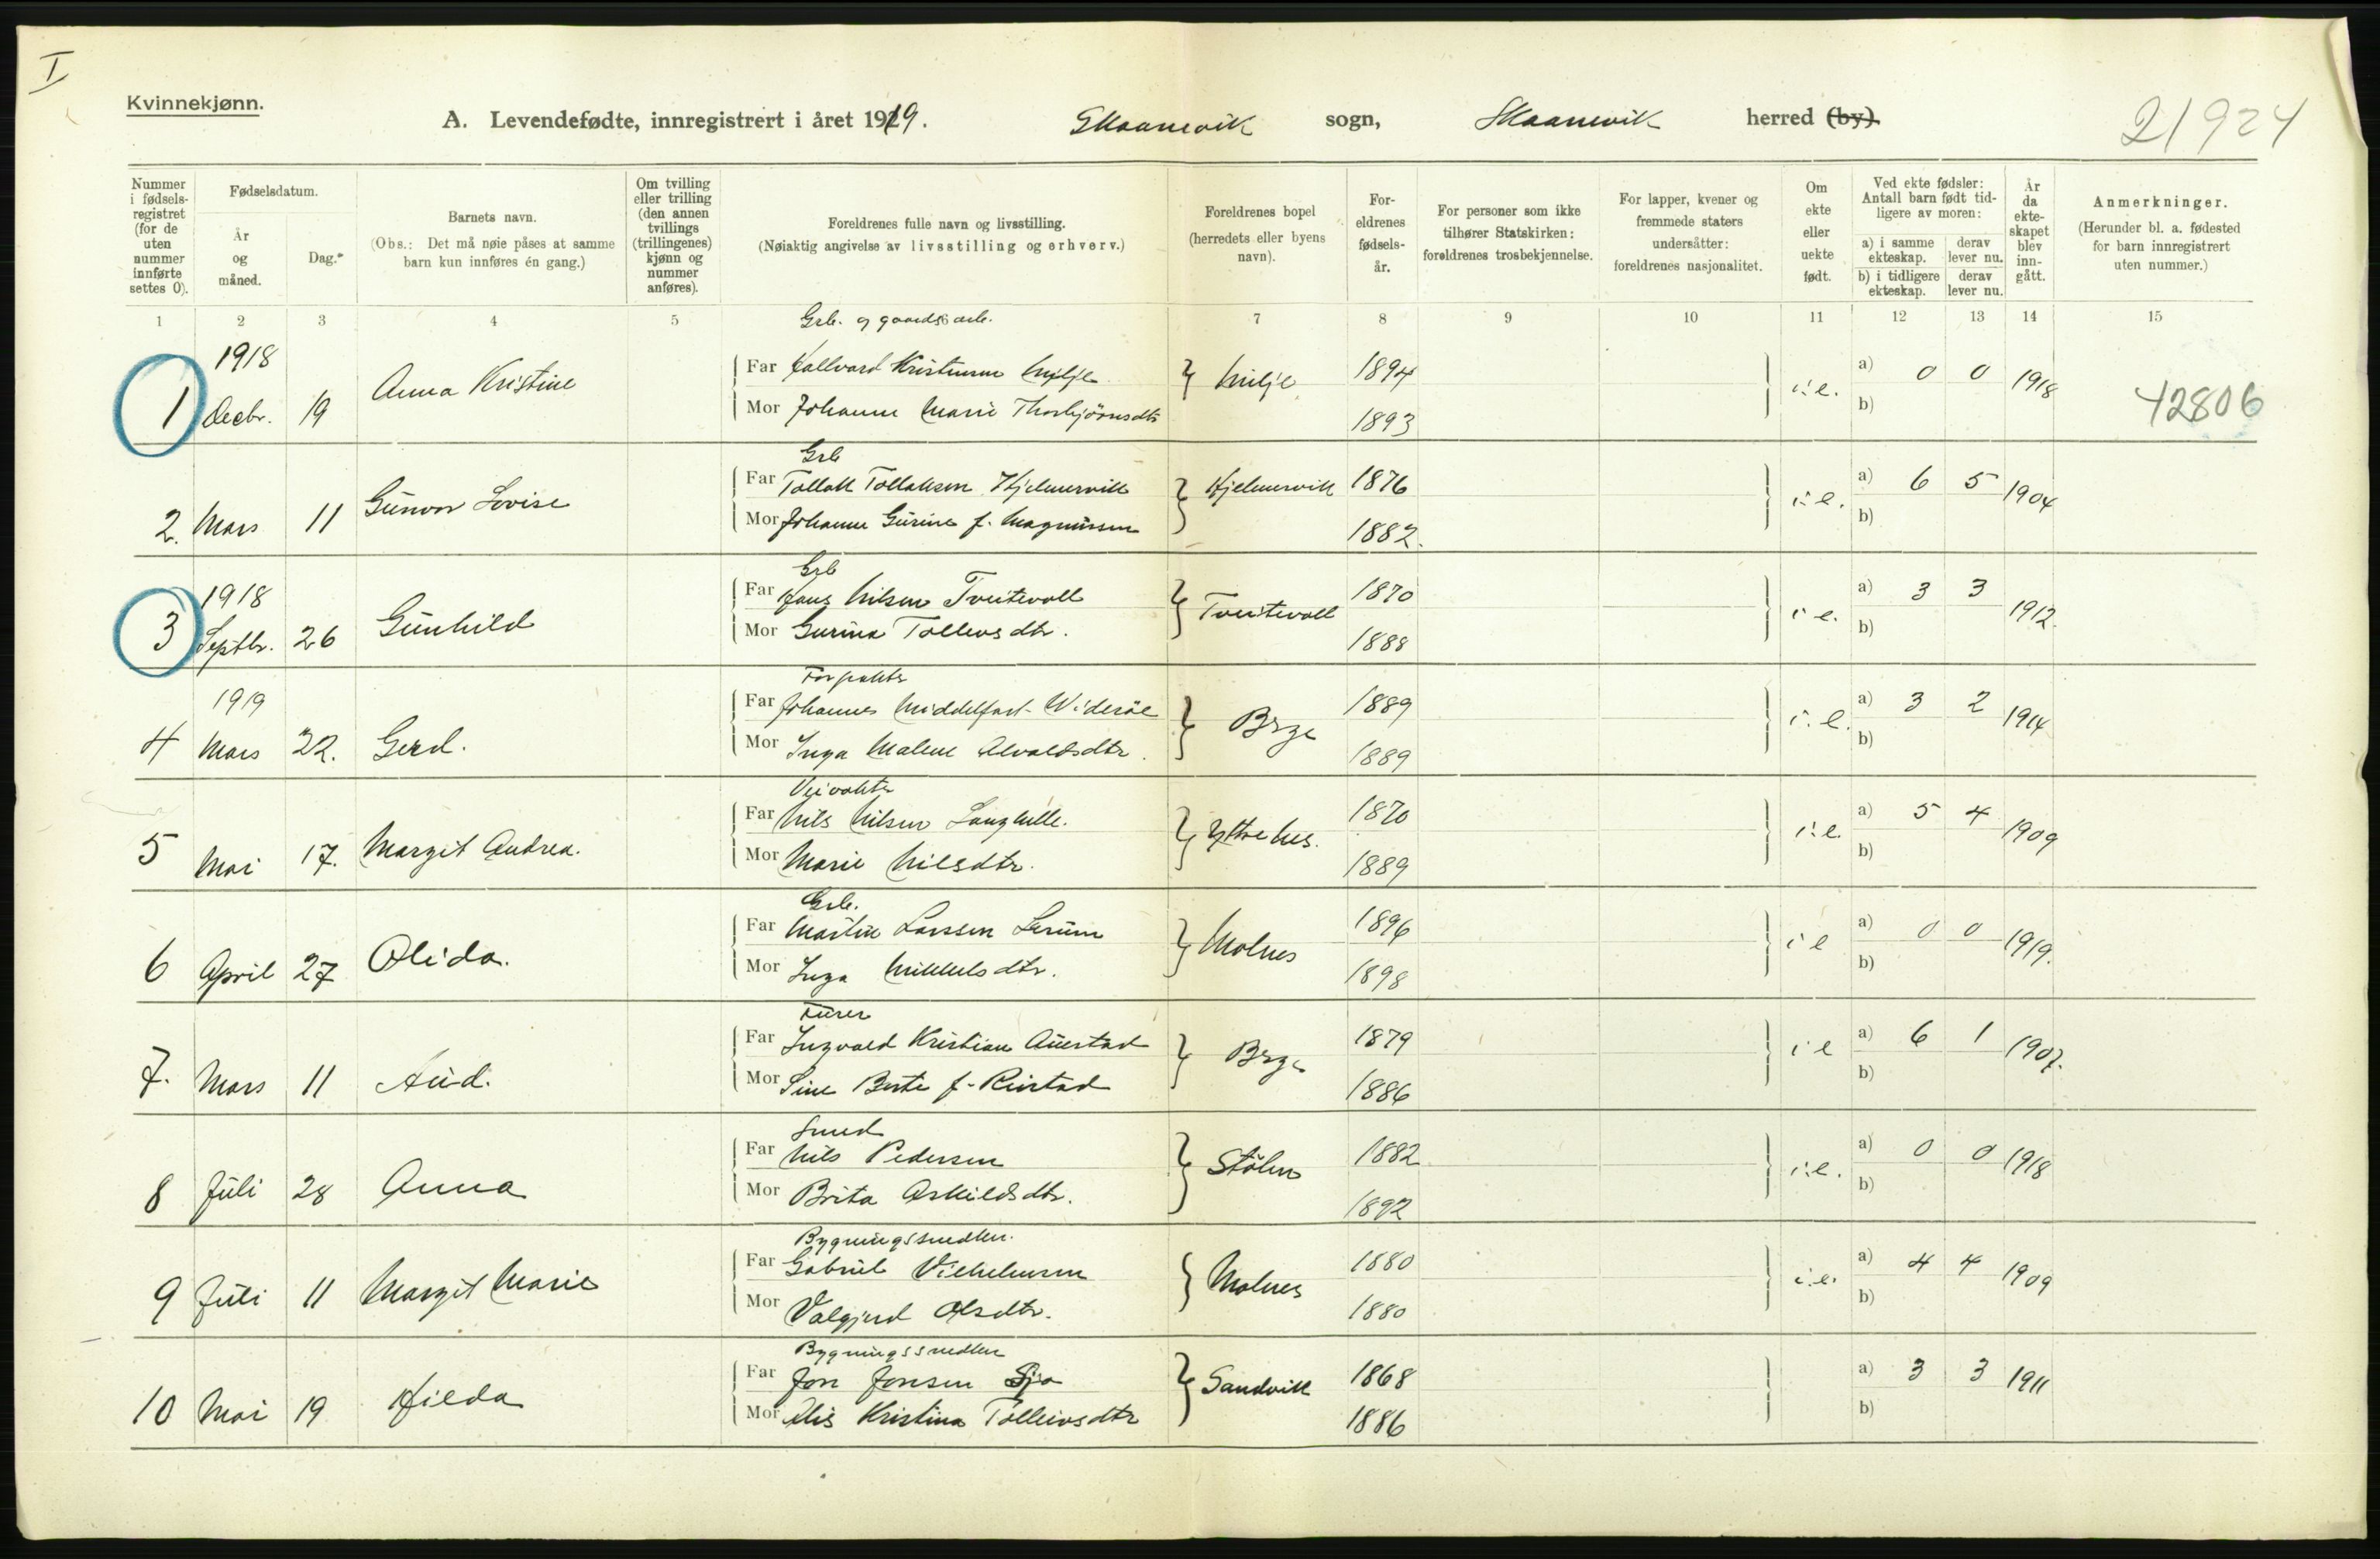 I
Kvinnekjønn.
A. Levendefødte, innregistrert i året 1919. Skaanevik sogn, Skaanevik herred (by)
21924
Nummer i fødselsregistret (for de uten nummer innførte settes 0).
Fødselsdatum.
År og måned.
Dag.
Barnets navn.
(Obs.: Det må nøie påses at samme barn kun innføres én gang.)
Om tvilling eller trilling (den annen tvillings (trillingenes) kjønn og nummer anføres).
Foreldrenes fulle navn og livsstilling.
(Nøiaktig angivelse av livsstilling og erhverv.)
Foreldrenes bopel (herredets eller byens navn).
Foreldrenes fødselsår.
For personer som ikke tilhører Statskirken: foreldrenes trosbekjennelse.
For lapper, kvener og fremmede staters undersåtter: foreldrenes nasjonalitet.
Om ekte eller uekte født.
Ved ekte fødsler: Antall barn født tidligere av moren:
a) i samme ekteskap. derav lever nu.
b) i tidligere ekteskap. derav lever nu.
År da ekteskapet blev inngått.
Anmerkninger.
(Herunder bl. a. fødested for barn innregistrert uten nummer.)
1 2 3 4 5 7 8 9 10 11 12 13 14 15
Grb. og gaardsarb.
1918
Far Hallvard Kristensen Milje Milje 1894 a) 0 0
1 Decbr. 19 Anna Kristine i:e. 1918 42806
Mor Johanne Marie Thorbjörnsdtr 1893 b)
Grb
Far Tollak Tollaksen Hjelmervik Hjelmervik 1876 a) 6 5
2. Mars 11 Gunvor Lovise i:e. 1904
Mor Johanne Gurine f. Magnussen 1882. b)
Grb
1918
Far Hans Nilsen Tveitevoll Tveitevoll 1870 a) 3 3
3 Septbr. 26 Gunhild i e. 1912.
Mor Gurina Tolleivsdtr. 1888 b)
Forpakter
1919
Far Johannes Middelfart-Wideröe Brge 1889 a) 3 2
4 Mars 22. Gerd. i:e. 1914
Mor Inga Malene Alvaldsdtr. 1889 b)
Veivokter
Far Nils Nilsen Langhelle. Yttrehus. 1870 a) 5 4
5 Mai 17. Margit Andrea. i:e. 1909
Mor Marie Nilsdtr. 1889 b)
Grb.
Far Martin Larssen Lerum Molnes 1896 a) 0 0
6 April 27 Olida. i e 1919.
Mor Inga Mikkelsdtr. 1898 b)
Far Ingvald Kristian Auestad Brge 1879 a) 6 1
7. Mars 11 Aud. i e 1907.
Mor Sine Berte f. Rivstad 1886 b)
Smed
Far Nils Pedersen Stölen 1882 a) 0 0
8 Juli 28 Anna i:e. 1918
Mor Brita Askildsdtr. 1892 b)
Bygningssnedker.
Far Gabriel Vilhelmsen Molnes 1880 a) 4 4
9 Juli 11 Margit Marie i:e. 1909
Mor Valgjerd Olsdtr. 1880 b)
Bygningssnedker
Far Jon Jonsen Sjo Sandvik 1868 a) 3 3
10 Mai 19 Hilda 1911
Mor Alis Kristina Tolleivsdtr 1886 b)